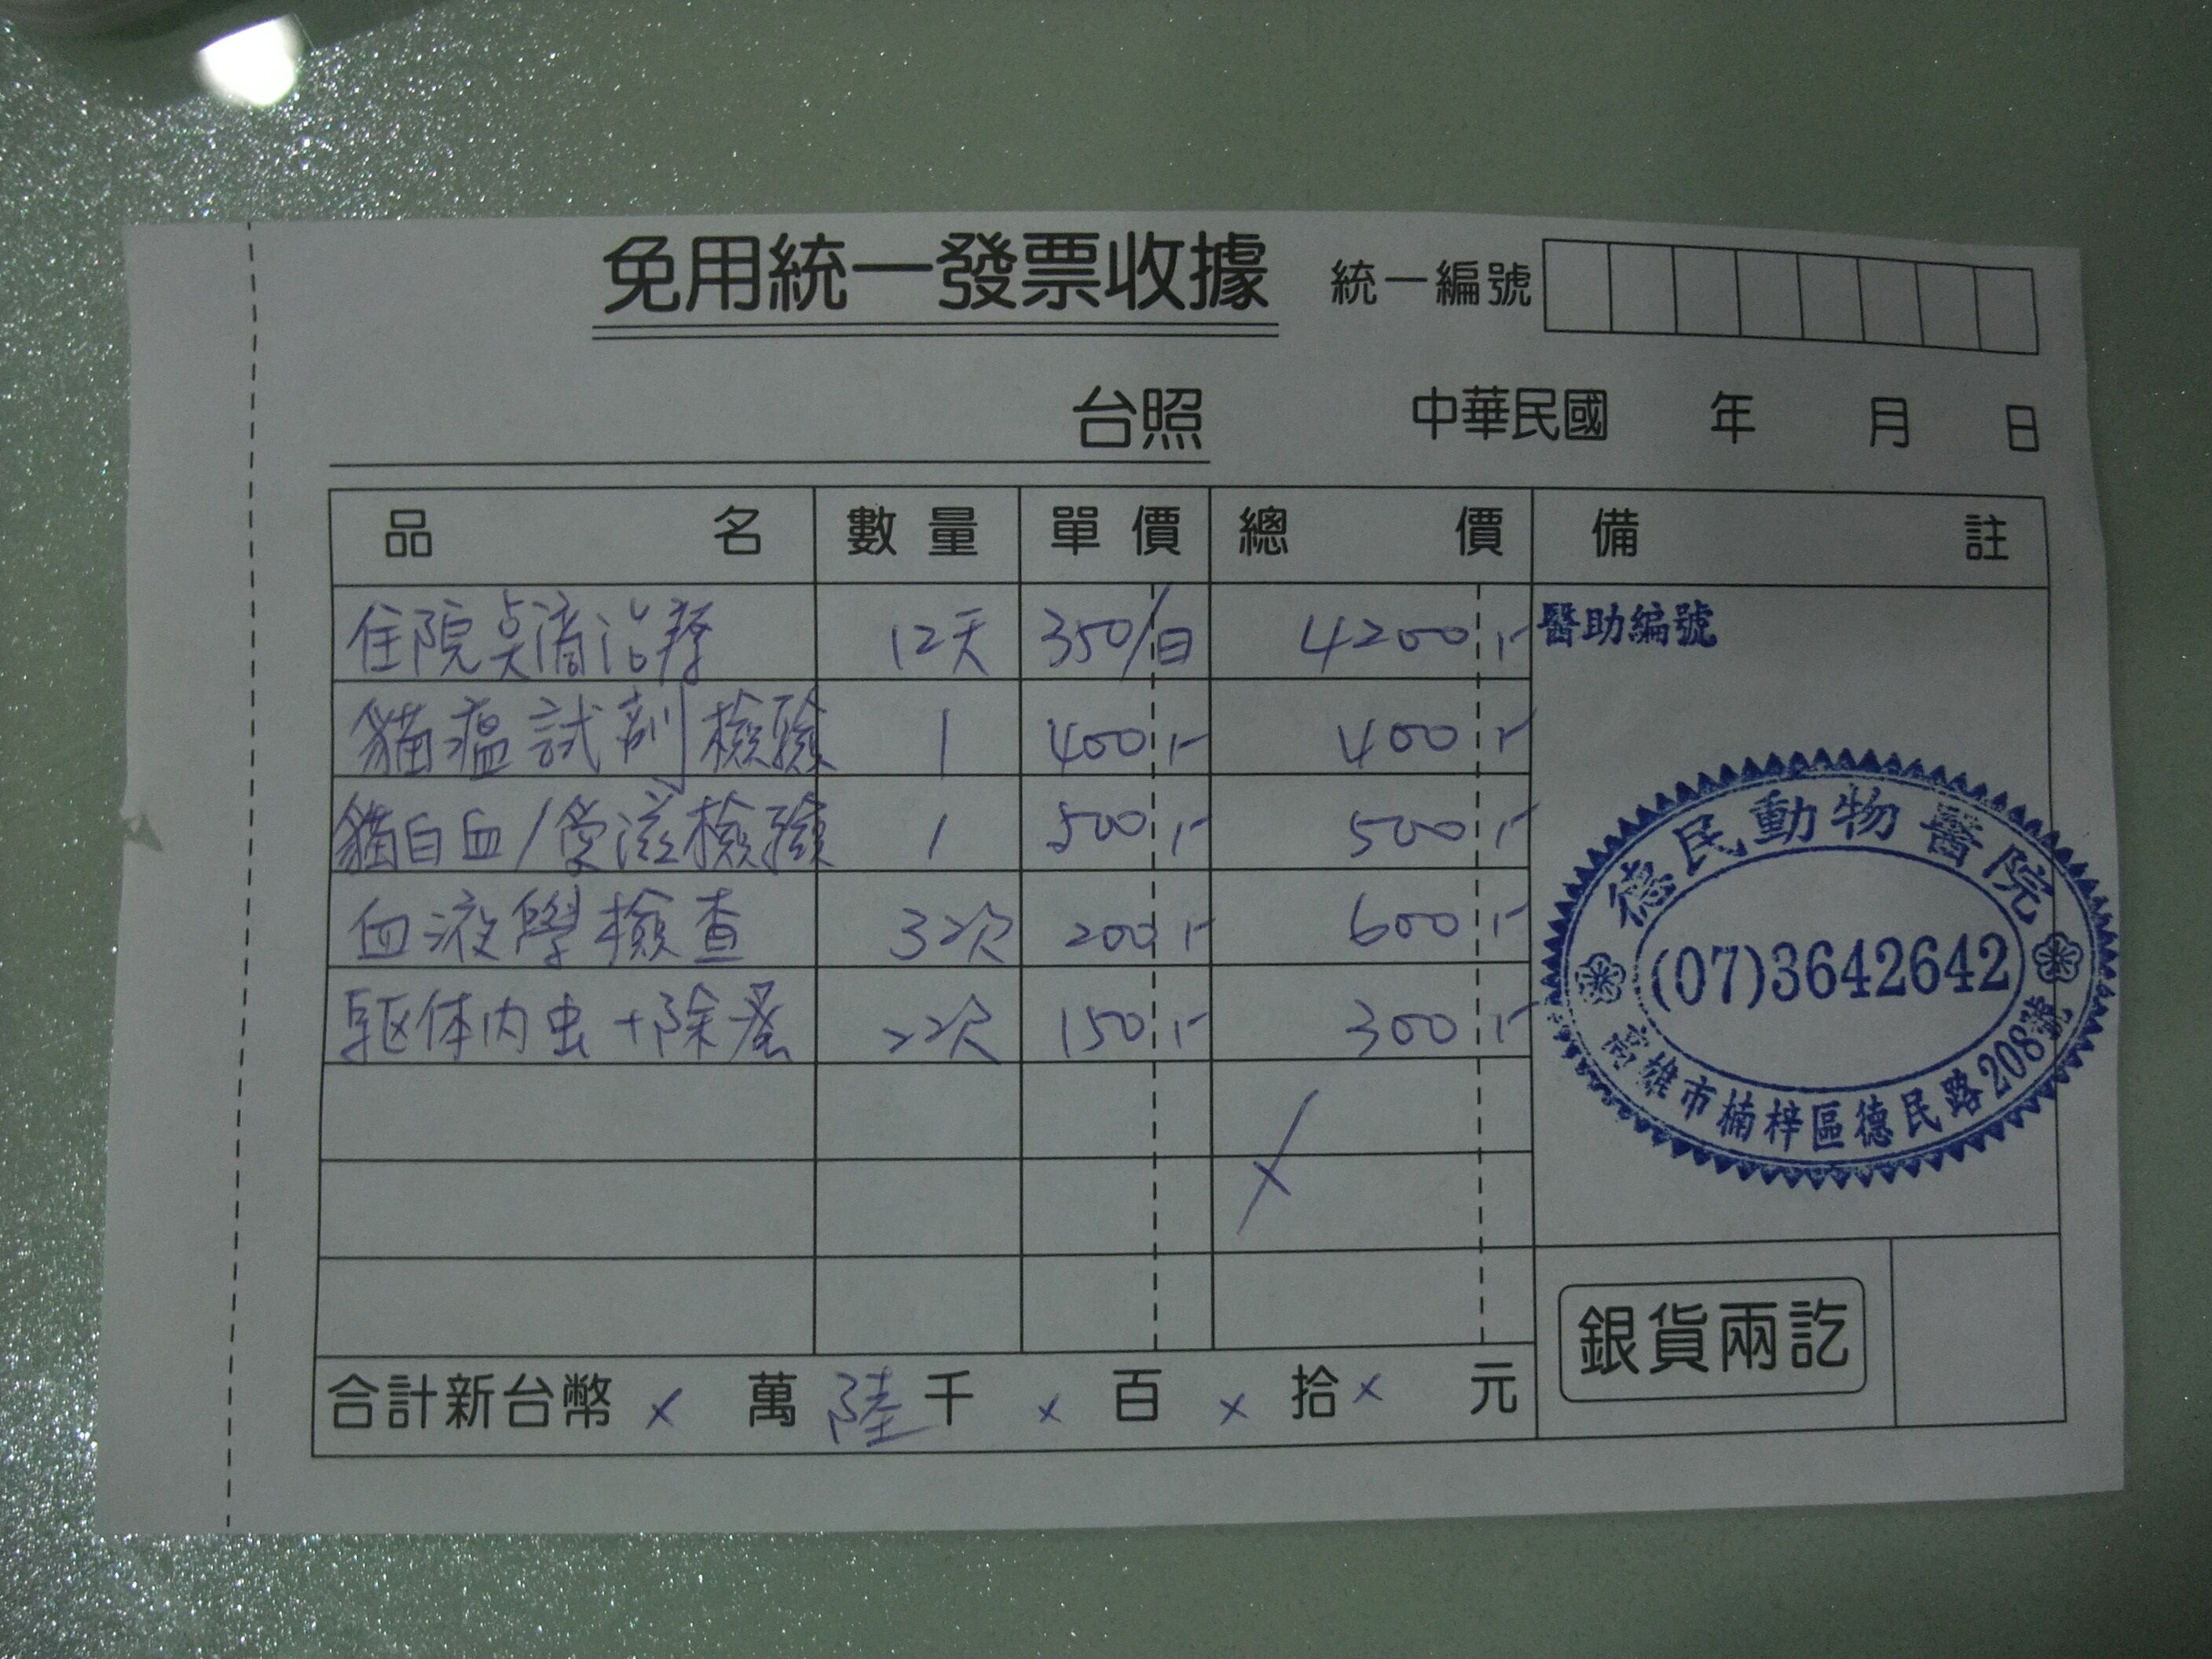 免用統一發票收據 統一編號
台照 中華民國 年 月 日
品名 數量 單價 總價 備註
住院點滴治療 12天 350/日 4200
醫助編號
貓瘟試劑檢驗 1 400 400
貓白血/愛滋檢驗 1 500 500
血液學檢查 3次 200 600
驱体內虫+除蚤 2次 150 300
德民動物醫院
(07)3642642
高雄市楠梓區德民路208號
合計新台幣 x 萬 陸 千 x 百 x 拾 x 元
銀貨兩訖